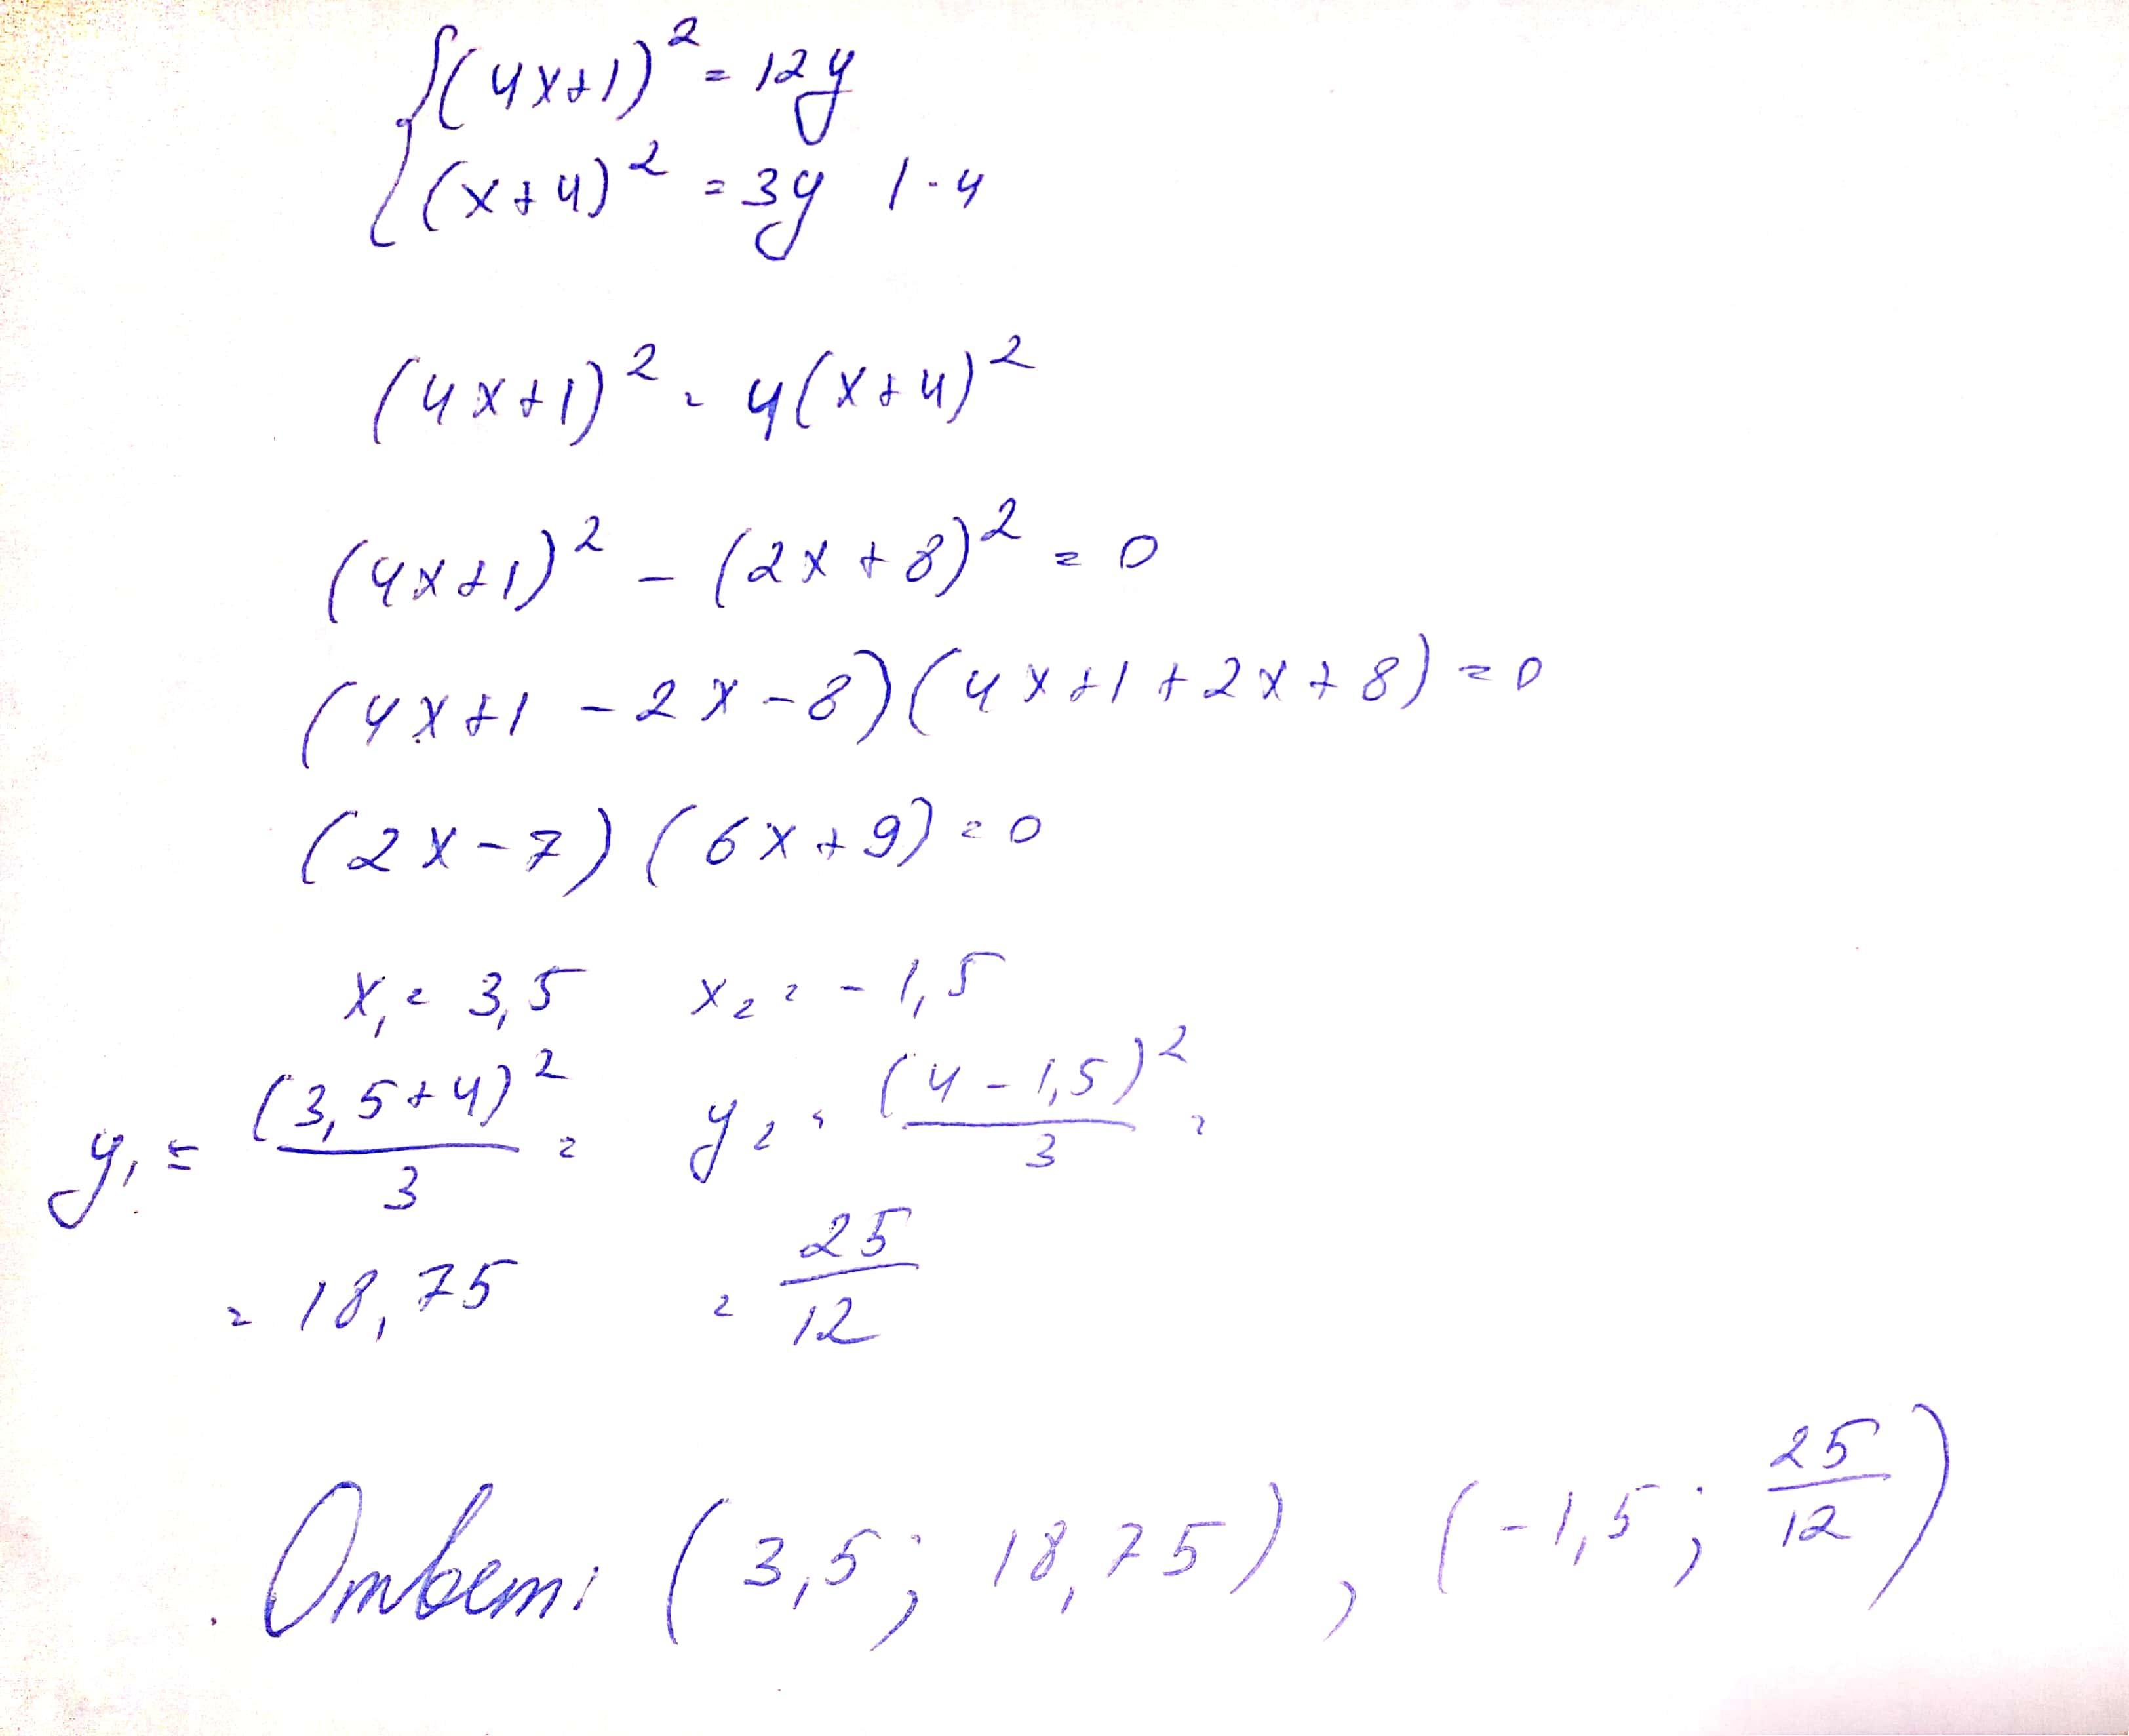 {(4x+1)² = 12y
(x+4)² = 3y |·4
(4x+1)² = 4(x+4)²
(4x+1)² - (2x+8)² = 0
(4x+1 - 2x-8)(4x+1+2x+8) = 0
(2x-7)(6x+9) = 0
x₁ = 3,5 x₂ = -1,5
y₁ = (3,5+4)²/3 = y₂ = (4-1,5)²/3 =
= 18,75 = 25/12
Ответ: (3,5; 18,75), (-1,5; 25/12)